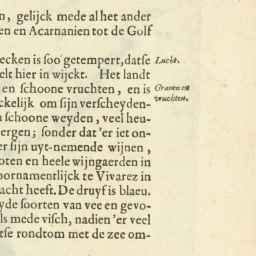 n, gelijck mede al het ander
en en Acarnanien tot de Golf
ecken is soo getempert, datse
Lucht.
elt hier in wijckt. Het landt
en schoone vruchten, en is
Graenen en
vruchten.
ckelijk om sijn verscheyden-
n schoone weyden, veel heu-
ergen; sonder dat 'er iet on-
er sijn uyt-nemende wijnen,
oten en heele wijngaerden in
oornamentlijck te Vivarez in
acht heeft. De druyf is blaeu.
yde soorten van vee en gevo-
ls mede visch, nadien 'er veel
tse rondtom met de zee om-